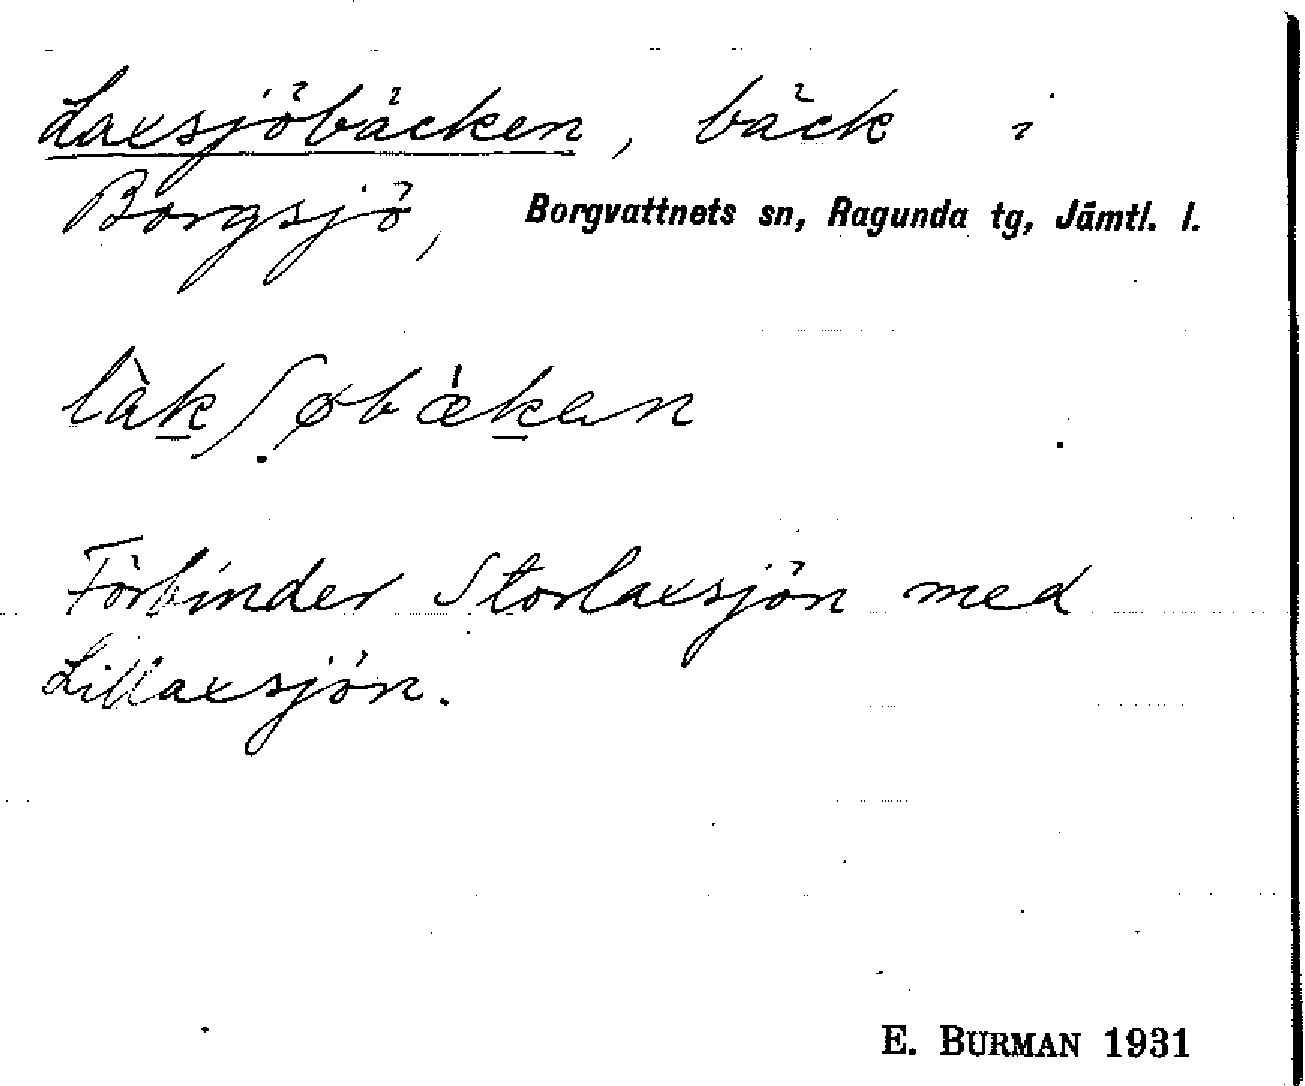 Laxsjöbäcken, bäck i
Borgsjö, Borgvattnets sn, Ragunda tg, Jämtl. l.
làk̲ʃøbæ̀k̲en
Förbinder Storlaxsjön med
Lillaxsjön.
E. BURMAN 1931